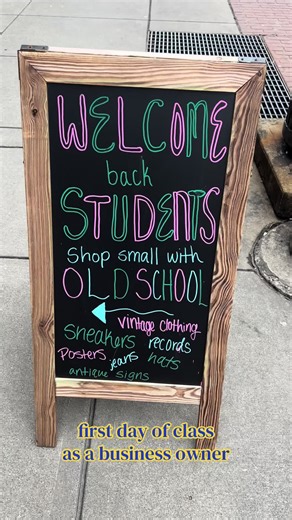 WELCOME
back
STUDENTS
Shop small with
OLD SCHOOL
vintage clothing
sneakers records
Posters jeans hats
antique signs
first day of class
as a business owner